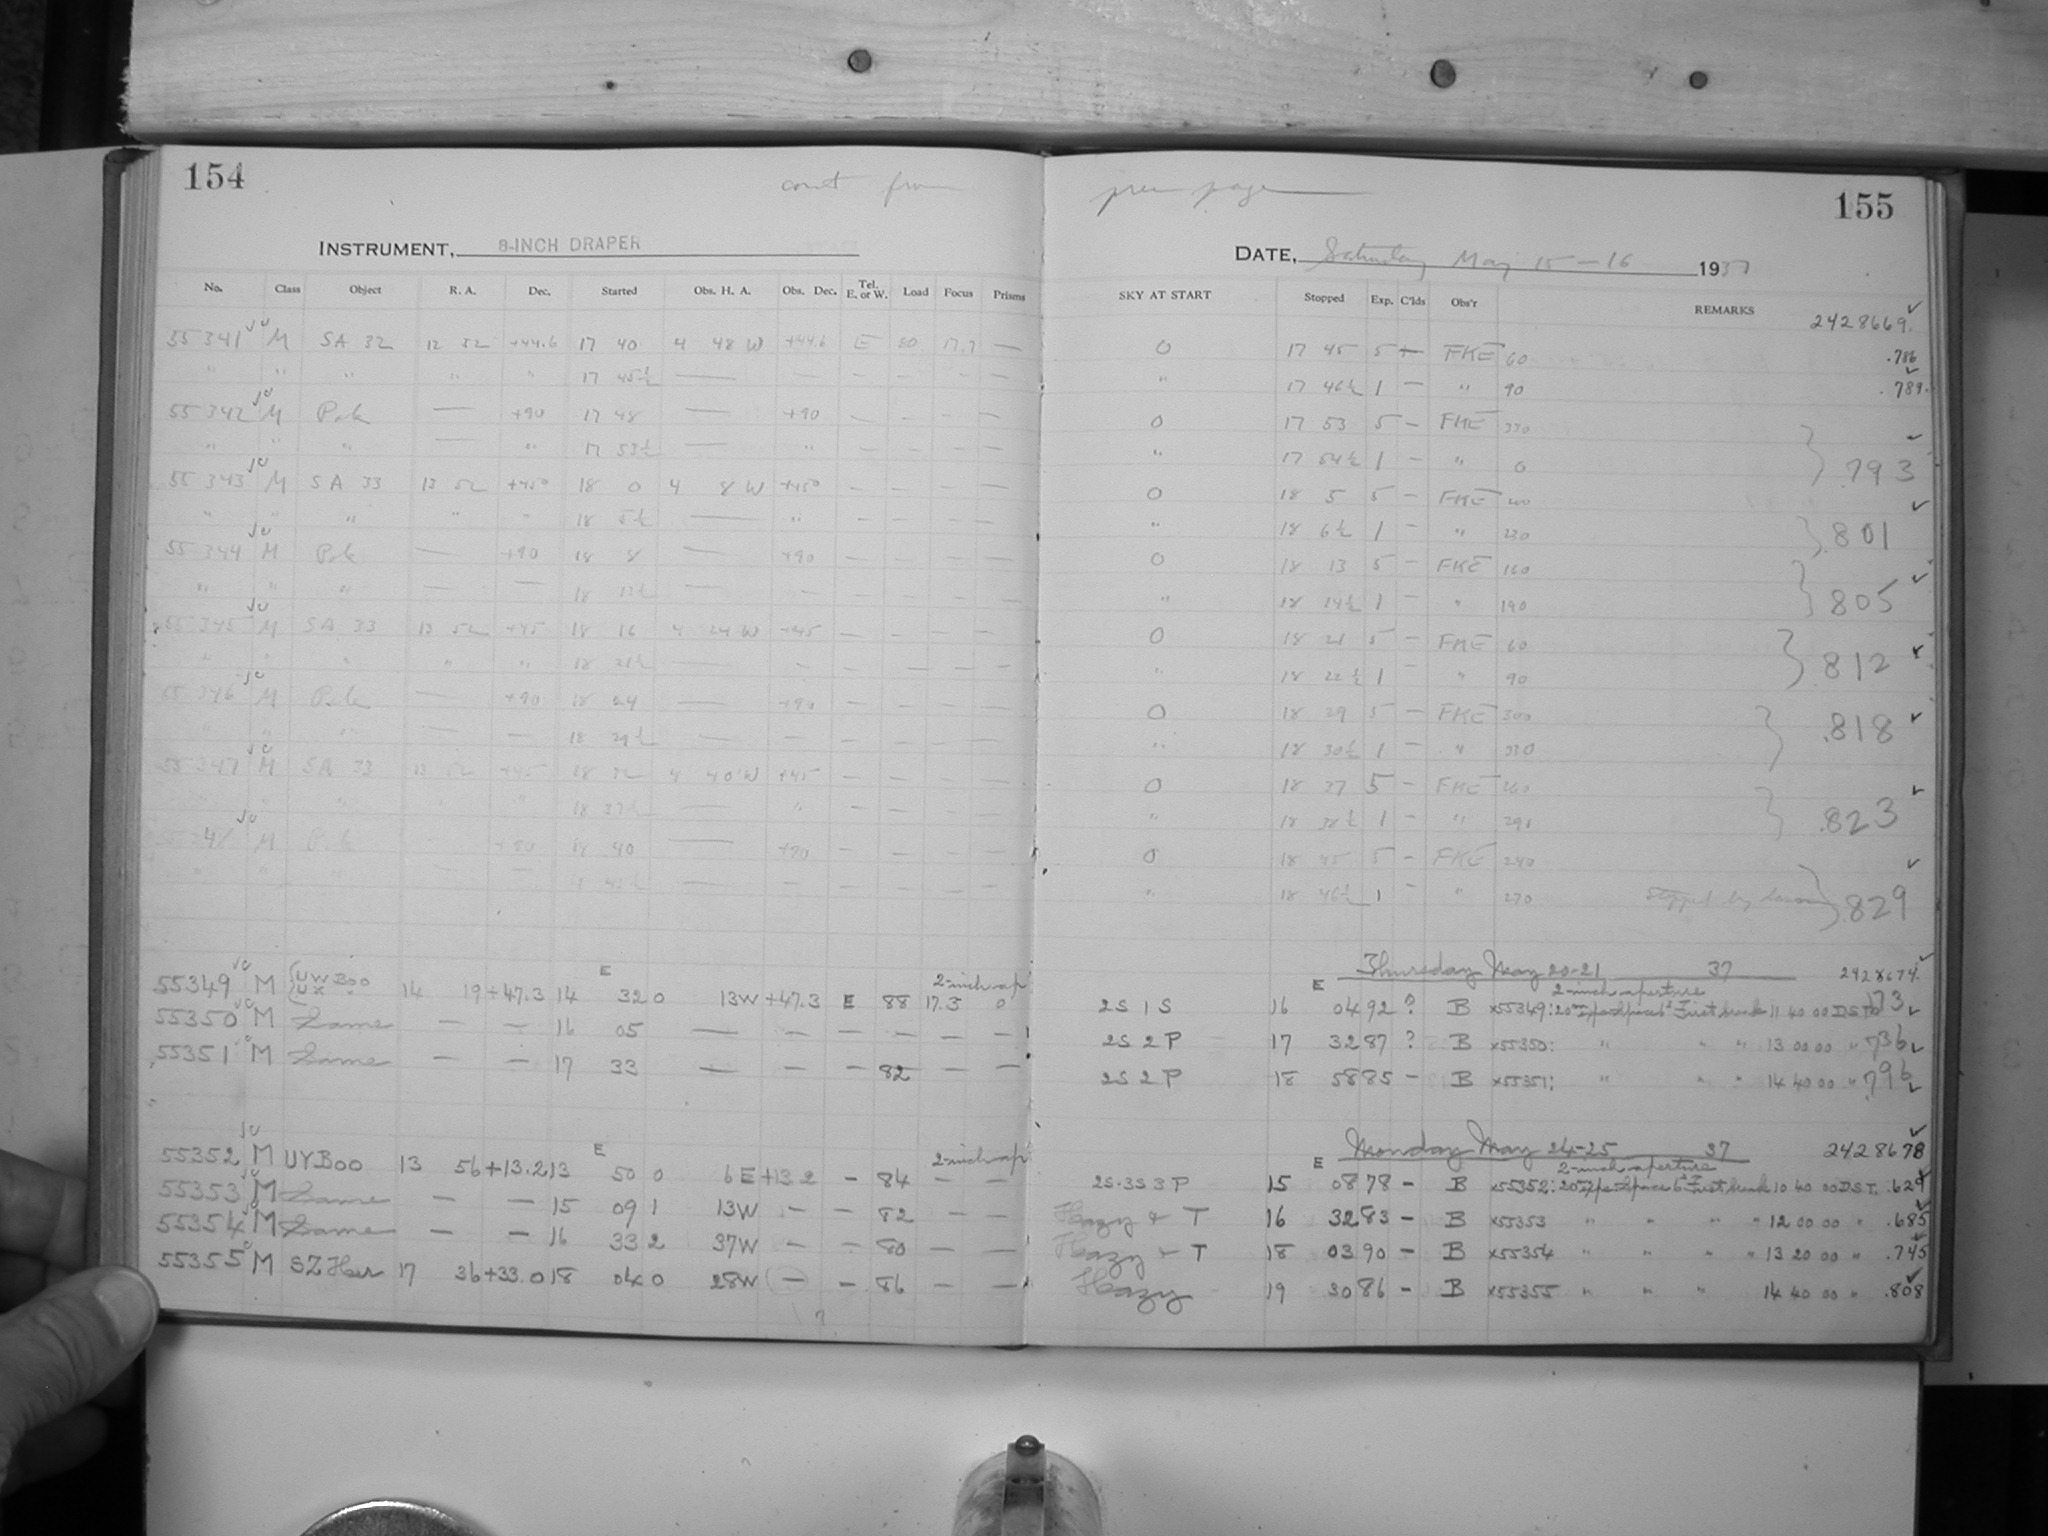 154
cont from
INSTRUMENT, 8-INCH DRAPER
No. Class Object R. A. Dec. Started Obs. H. A. Obs. Dec. Tel. E. or W. Load Focus Prisms
55341 M SA 32 12 52 +44.6 17 40 4 48 W +44.6 E 80 17.7 —
" " " " " 17 45½ — — — — — —
55342 M Pole — +90 17 48 — +90 — — — —
" " " — " 17 53½ — " — — — —
55343 M SA 33 13 52 +45° 18 0 4 8 W +45° — — — —
" " " " " 18 5½ — " — — — —
55344 M Pole — +90 18 8 — +90 — — — —
" " " — — 18 13½ — — — — — —
55345 M SA 33 13 52 +45 18 16 4 24 W +45 — — — —
" " " " " 18 21½ — — — — — —
55346 M Pole — +90 18 24 — +90 — — — —
" " " — — 18 29½ — — — — — —
55347 M SA 33 13 52 +45 18 32 4 40 W +45 — — — —
" " " " 18 37½ — " — — — —
M Pole +90 18 40 — +90 — — — —
55349 M {UW Boo UX 14 19 +47.3 14 E 32 0 13W +47.3 E 88 2-inch ap 17.3 0
55350 M Same — — 16 05 — — — — — —
55351 M Same — — 17 33 — — — 82 — —
55352 M UY Boo 13 56 +13.2 13 E 50 0 6 E +13 2 — 84 2-inch ap — —
55353 M Same — — 15 09 1 13W — — 82 — —
55354 M Same — — 16 33 2 37W — — 80 — —
55355 M SZ Her 17 36 +33.0 18 04 0 28W — — 86 — —
prev page
155
DATE, Saturday May 15-16 1937
SKY AT START Stopped Exp. C'lds Obs'r REMARKS
2428669.
0 17 45 5 — FKE 60 .786
" 17 46½ 1 — " 90 .789
0 17 53 5 — FKE 330
" 17 54½ 1 — " 0 } .793
0 18 5 5 — FKE
" 18 6½ 1 — " 230 } .801
0 18 13 5 — FKE 160
" 18 14½ 1 — " 190 } .805
0 18 21 5 — FKE 60
" 18 22½ 1 — " 90 } .812
0 18 29 5 — FKE 300
" 18 30½ 1 — " 330 } .818
0 18 37 5 — FKE 260
" 18 38½ 1 — " 290 } .823
0 18 45 5 — FKE 240
" 18 46½ 1 — " 270 Stopped by } .829
Thursday May 20-21 37 2428674.
2-inch aperture
2S 1 S 16 E 04 92 ? B x55349: First break 11 40 00 D.S.T.
2S 2 P 17 32 87 ? B x55350: " " " 13 00 00 " 736
2S 2 P 18 58 85 — B x55351: " " " 14 40 00 " .796
Monday May 24-25 37 2428678
2-inch aperture
2S.3S 3 P 15 E 08 78 — B x55352: First break 10 40 00 D.S.T. .629
Hazy & T 16 32 83 — B x55353 " " " " 12 00 00 " .685
Hazy & T 18 03 90 — B x55354 " " " " 13 20 00 " .745
Hazy 19 30 86 — B x55355 " " " 14 40 00 " .808